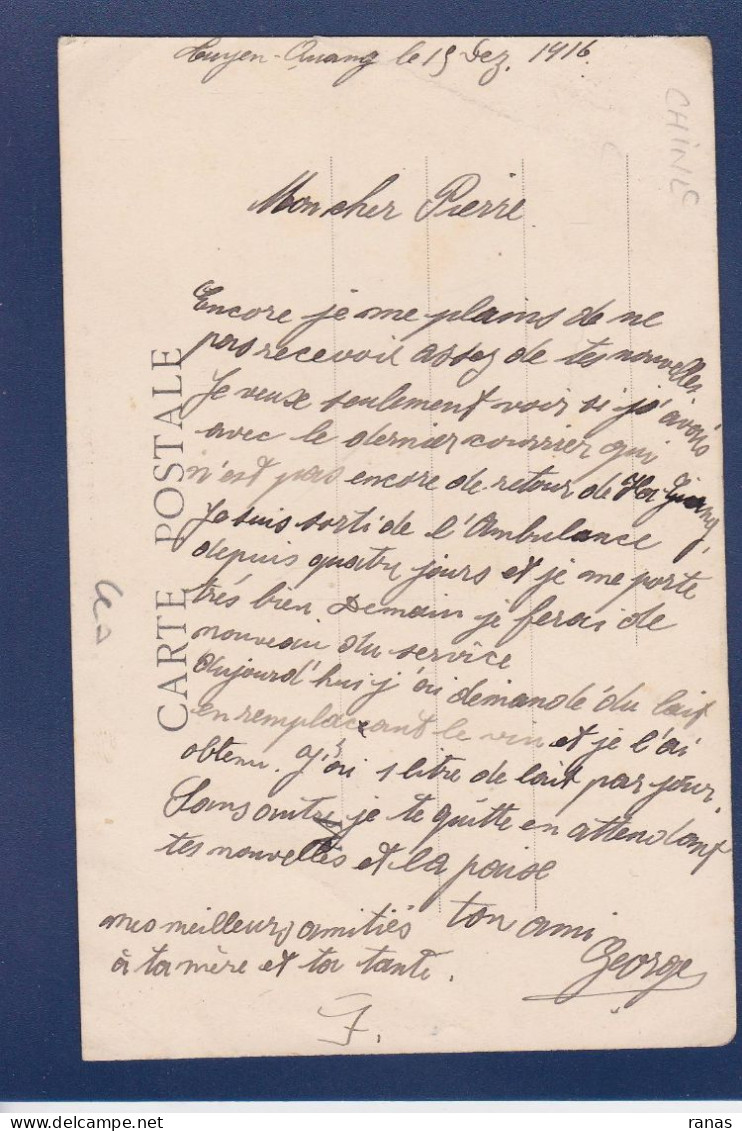 Tuyen-Quang le 15 Dez. 1916
CHINE
Mon cher Pierre
Encore je me plains de ne
pas recevoir assez de tes nouvelles.
Je veux seulement voir si j'avais
avec le dernier courrier qui
n'est pas encore de retour de Ha Giang,
Je suis sorti de l'Ambulance
depuis quatre jours et je me porte
très bien Demain je ferai de
nouveau du service
Aujourd'hui j'ai demandé du lait
en remplacant le vin et je l'ai
obtenu. J'ai 1 litre de lait par jour.
Sans autre je te quitte en attendant
tes nouvelles et la paise
ton ami
George
mes meilleurs amitiés
à ta mère et ta tante.
CARTE POSTALE
F.
ranas